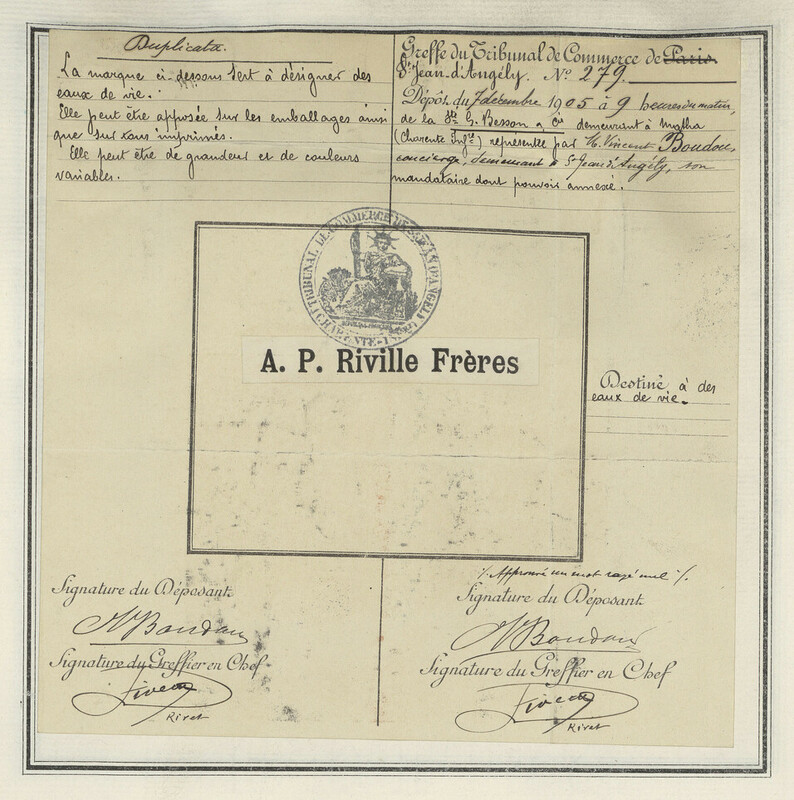 Duplicata.
La marque ci-dessous sert à désigner des
eaux de vie.
Elle peut être apposée sur les emballages ainsi
que sur tous imprimés.
Elle peut être de grandeur et de couleurs
variables.
Greffe du Tribunal de Commerce de Paris.
St Jean-d'Angély. No 279
Dépôt du 7 décembre 1905 à 9 heures du matin,
de la Sté G. Besson & Cie demeurant à Matha
(Charente Infre) représentée par M. Vincent Boudou,
concierge, demeurant à St Jean d'Angély, son
mandataire dont pouvoir annexé.
TRIBUNAL DE COMMERCE DE St JEAN D'ANGELY
(CHARENTE-INFRE)
A. P. Riville Frères
Destiné à des
eaux de vie.
Signature du Déposant
Boudou
Signature du Greffier en Chef
Rivet
./. Approuvé un mot rayé nul ./.
Signature du Déposant
Boudou
Signature du Greffier en Chef
Rivet